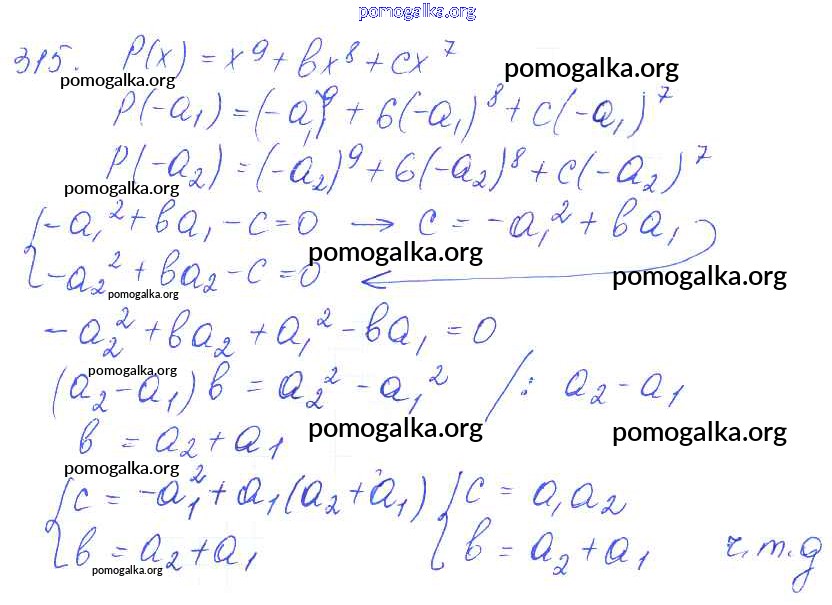 pomogalka.org
315. P(x) = x⁹ + bx⁸ + cx⁷
pomogalka.org pomogalka.org
P(-a₁) = (-a₁)⁹ + b(-a₁)⁸ + c(-a₁)⁷
P(-a₂) = (-a₂)⁹ + b(-a₂)⁸ + c(-a₂)⁷
pomogalka.org
{ -a₁² + ba₁ - c = 0 → c = -a₁² + ba₁
pomogalka.org
{ -a₂² + ba₂ - c = 0 ←
pomogalka.org
pomogalka.org
-a₂² + ba₂ + a₁² - ba₁ = 0
pomogalka.org
(a₂ - a₁) b = a₂² - a₁² /: a₂ - a₁
pomogalka.org pomogalka.org
b = a₂ + a₁
pomogalka.org
{ c = -a₁² + a₁(a₂ + a₁) { c = a₁a₂
{ b = a₂ + a₁ { b = a₂ + a₁ ч.т.д
pomogalka.org